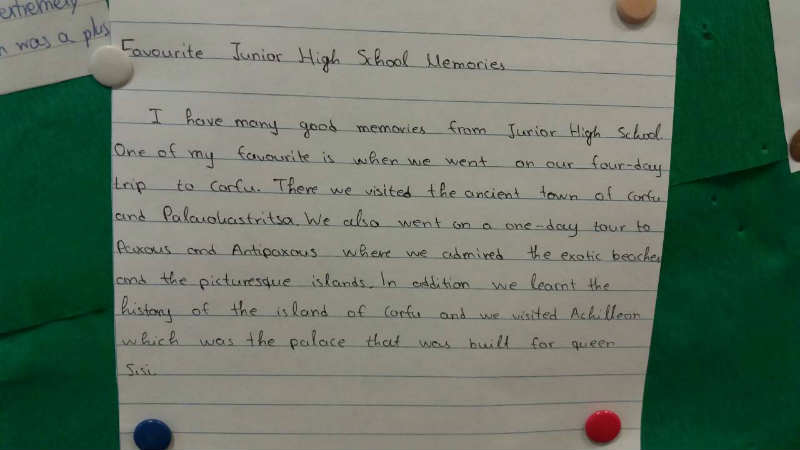 extremely
n was a plus
Favourite Junior High School Memories
I have many good memories from Junior High School.
One of my favourite is when we went on our four-day
trip to Corfu. There we visited the ancient town of Corfu
and Palaiokastritsa. We also went on a one-day tour to
Paxous and Antipaxous where we admired the exotic beaches
and the picturesque islands. In addition we learnt the
history of the island of Corfu and we visited Achilleon
which was the palace that was built for queen
Sisi.